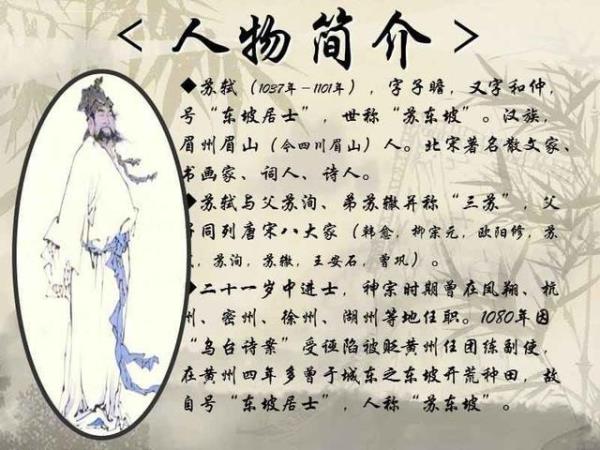 <人物简介>
◆苏轼（1037年-1101年），字子瞻，又字和仲，
号“东坡居士”，世称“苏东坡”。汉族，
眉州眉山（今四川眉山）人。北宋著名散文家、
书画家、词人、诗人。
◆苏轼与父苏洵、弟苏辙并称“三苏”，父
子同列唐宋八大家（韩愈，柳宗元，欧阳修，苏
轼，苏洵，苏辙，王安石，曾巩）。
◆二十一岁中进士，神宗时期曾在凤翔、杭
州、密州、徐州、湖州等地任职。1080年因
“乌台诗案”受诬陷被贬黄州任团练副使，
在黄州四年多曾于城东之东坡开荒种田，故
自号“东坡居士”，人称“苏东坡”。